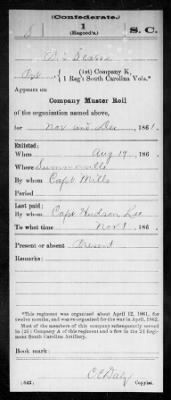 (Confederate.)
S 1 (Hagood's.) S. C.
Pvt., { (1st) Company K,
1 Reg't South Carolina Vols.*
Appears on
Company Muster Roll
of the organization named above,
for Nov and Dec, 1861.
Enlisted:
When Aug 19, 186 .
Where Summerville
By whom Capt. Mills
Period
Last paid:
By whom Capt Hudson Lee
To what time Nov 1, 186 .
Present or absent Present
Remarks:
*This regiment was organized about April 12, 1861, for
twelve months, and was re-organized for the war in April, 1862.
Most of the members of this company subsequently served
in (2d) Company A of this regiment and a few in the 2d Regi-
ment South Carolina Artillery.
Book mark:
(642) Copyist.